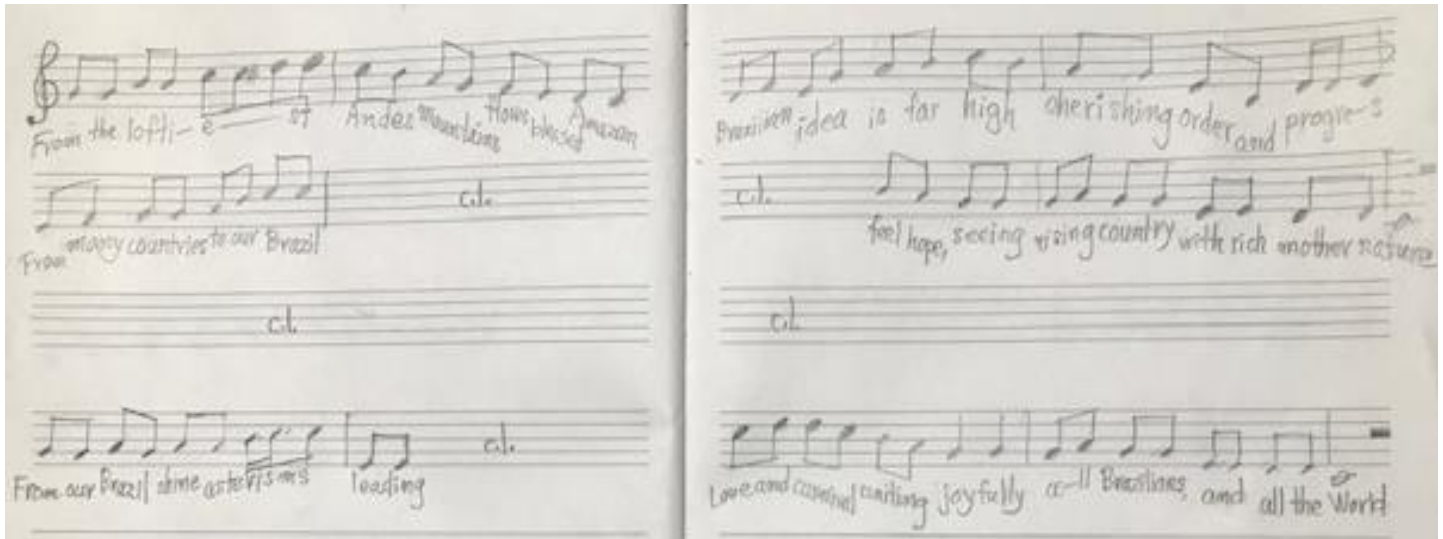 From the lofti-e-st Andes mountains flows blessed Amazon
From many countries to our Brazil c.l.
c.l.
From our Brazil shine asterisms leading c.l.
Brazilian idea is far high cherishing order and progre-s
c.l. feel hope, seeing rising country with rich another nature
c.l.
Love and carnival uniting joyfully a-ll Brazilians, and all the World